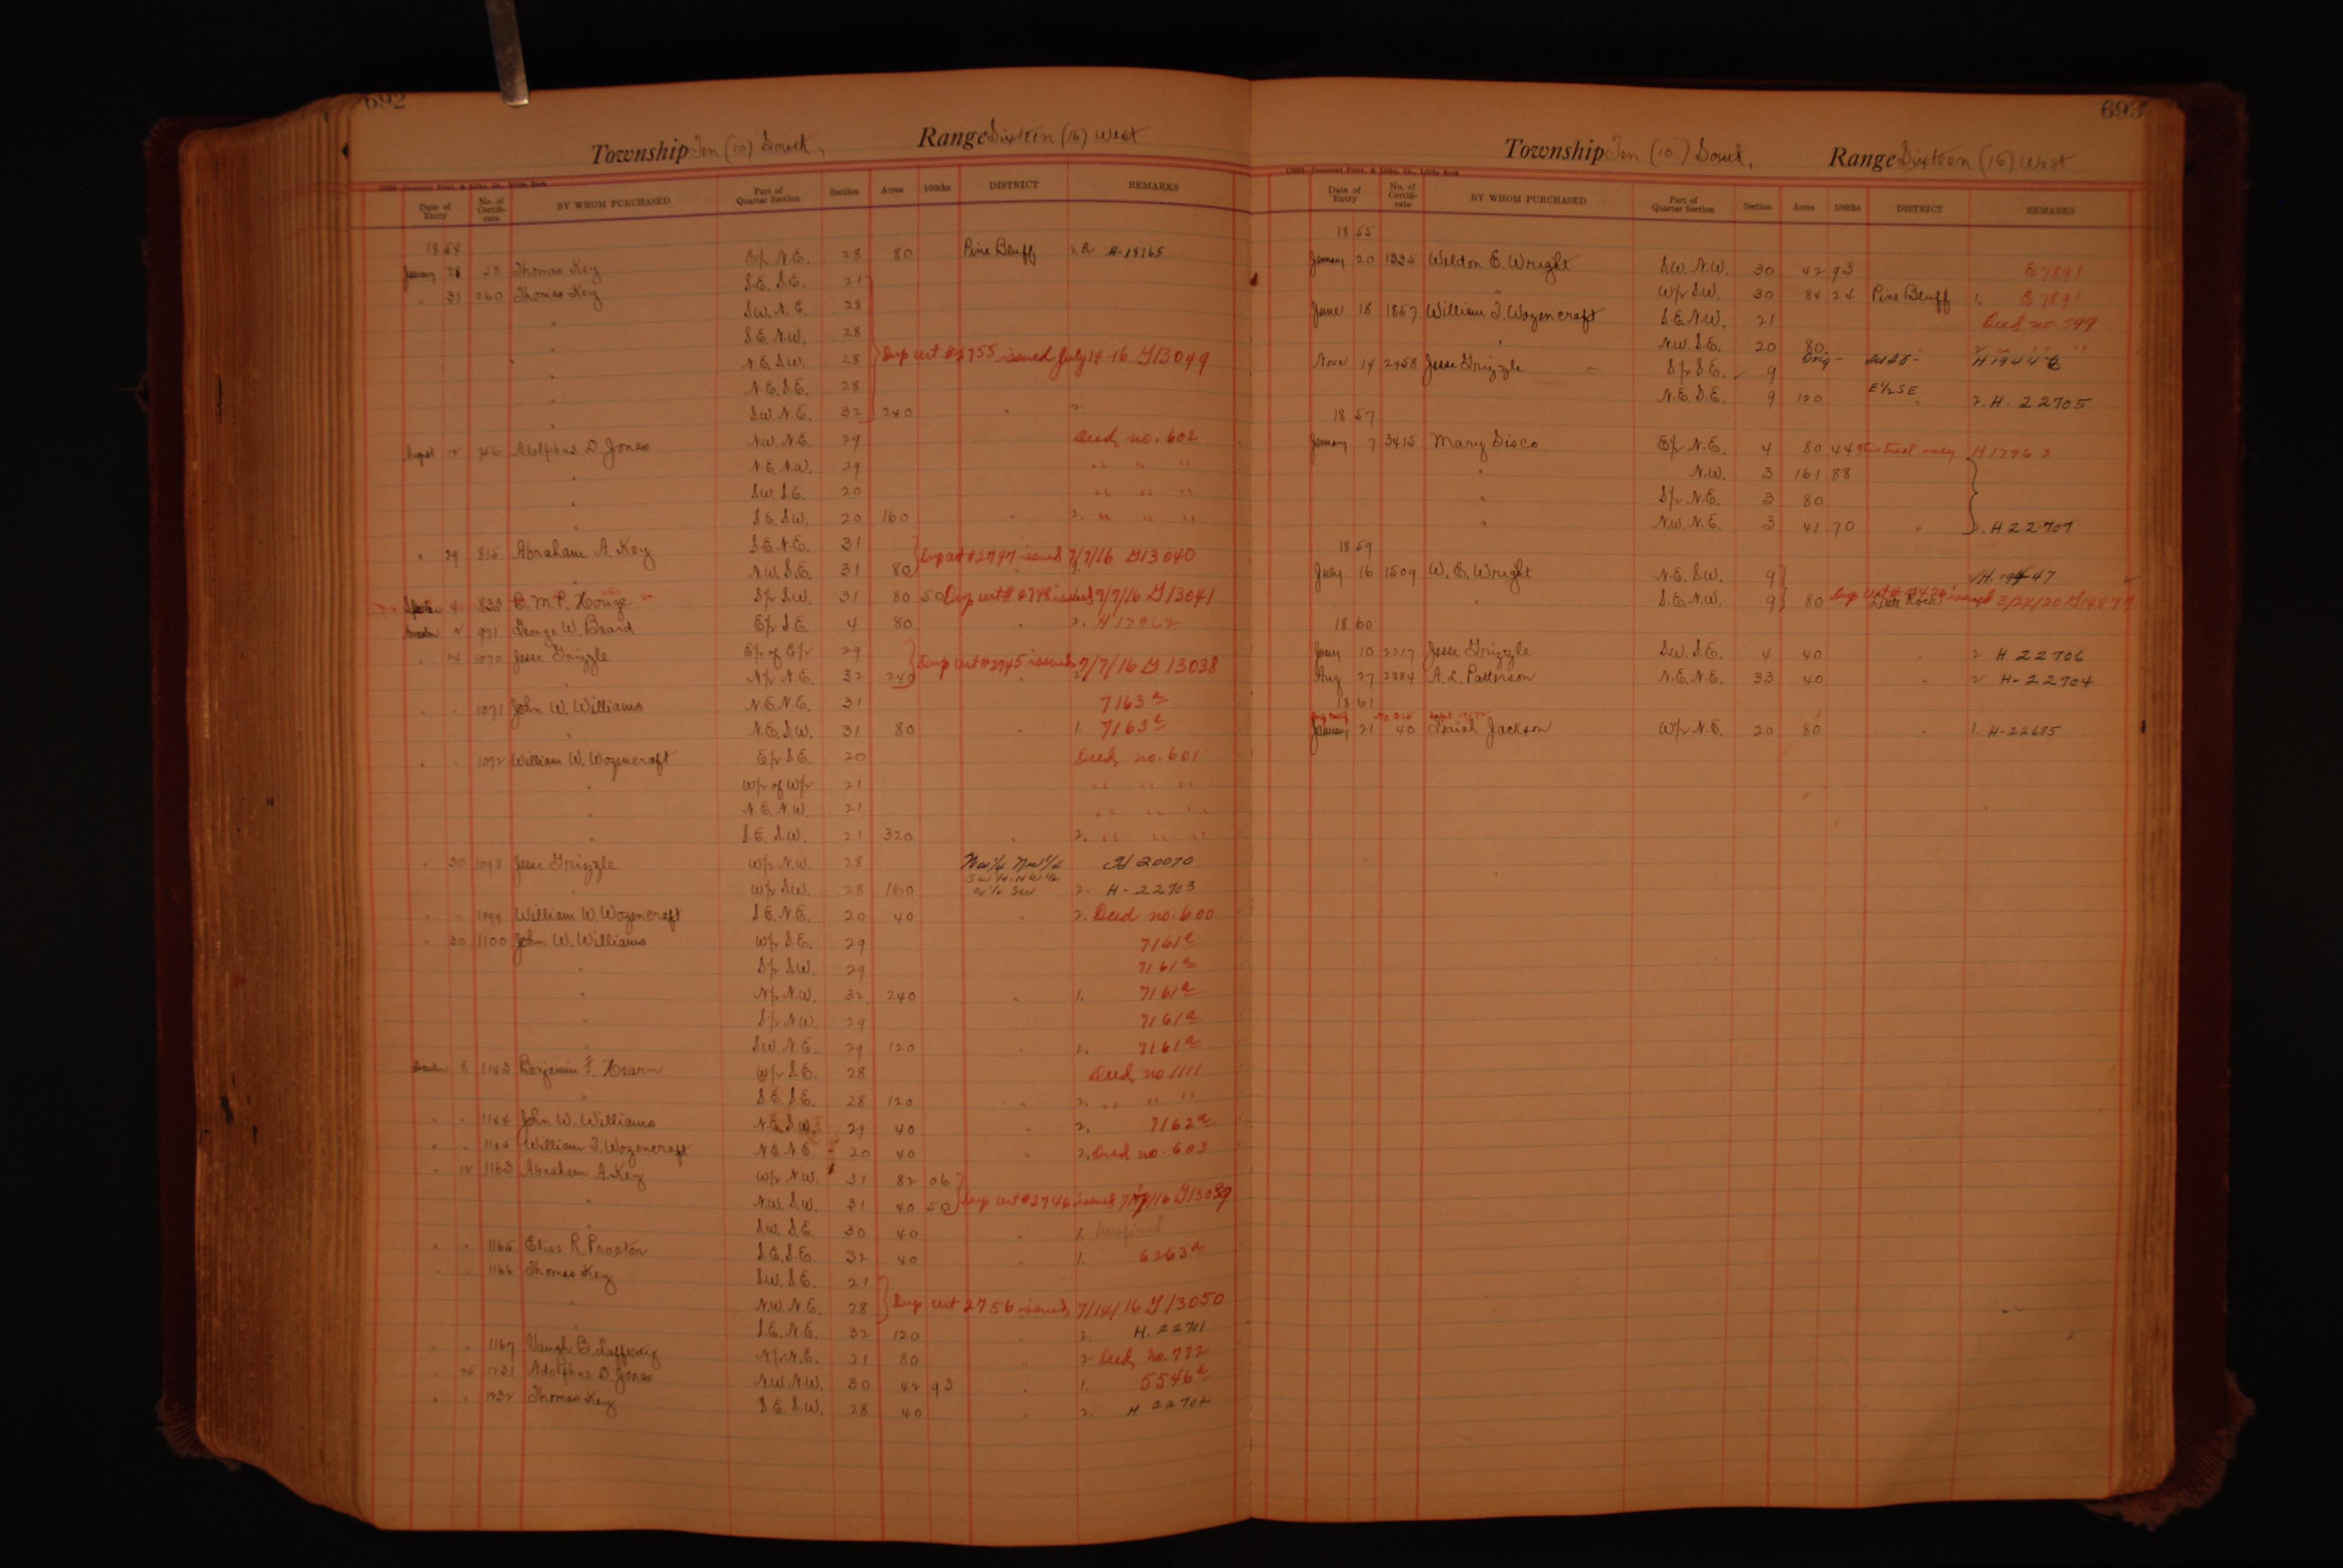 692
Township Ten (10) South, Range Sixteen (16) West
Date of Entry No. of Certifi-cate BY WHOM PURCHASED Part of Quarter Section Section Acres 100ths DISTRICT REMARKS
1854
January 28 58 Thomas Key E½ N.E. 28 80 Pine Bluff 2. H-18765
" 31 260 Thomas Key S.E. S.E. 21
" S.W. N.E. 28
" S.E. N.W. 28
" N.E. S.W. 28 Dup cert #2755 issued July 14-16 G13049
" N.E. S.E. 28
" S.W. N.E. 32 240 " 2.
August 756 Adolphus D. Jones N.W. N.E. 29 Deed no. 602
" N.E. N.W. 29 " " "
" S.W. S.E. 20 " " "
" S.E. S.W. 20 160 " 2. " " "
" 29 815 Abraham A. Key S.E. N.E. 31 Dup cert #2747 issued 7/7/16 G13040
" N.W. S.E. 31 80
833 S½ S.W. 31 80 50 Dup cert #2748 issued 7/7/16 G13041
971 George W. Beard E½ S.E. 4 80 " 2. H17962
" 24 1070 Jesse Grizzle E½ of E½ 29 Dup cert #2745 issued 7/7/16 G13038
" N½ N.E. 32 240 " 2.
" " 1071 John W. Williams N.E. N.E. 31 7163 a
" N.E. S.W. 31 80 " 1. 7163 a
" " 1072 William W. Wozencraft E½ S.E. 20 Deed no. 601
" W½ of W½ 21 " " "
" N.E. N.W. 21 " " "
" S.E. S.W. 21 320 " 2. " " "
" 30 1098 Jesse Grizzle W½ N.W. 28 NW¼ NW¼ H 20070
SW¼ NW¼
" W½ S.W. 28 160 W½ SW 2. H-22703
" " 1099 William W. Wozencraft S.E. N.E. 20 40 " 2. Deed no. 600
" 30 1100 John W. Williams W½ S.E. 29 7161 a
" S½ S.W. 29 7161 a
" N½ N.W. 32 240 " 1. 7161 a
" S½ N.W. 29 7161 a
" S.W. N.E. 29 120 " 2. 7161 a
December 8 1143 Benjamin F. Hearn W½ S.E. 28 Deed no 1111
" S.E. S.E. 28 120 " 2. " " "
" " 1144 John W. Williams N.E. S.W. 29 40 " 2. 7162 a
" " 1145 William T. Wozencraft N.E. N.E. 20 40 " 2. Deed no. 603
" 12 1163 Abraham A. Key W½ N.W. 31 82 06
" N.W. S.W. 31 40 50 Dup cert #2746 issued 7/7/16
" S.W. S.E. 30 40 " 1.
" " 1165 Elias R. Proctor S.E. S.E. 32 40 " 1. 6263 a
" " 1166 Thomas Key S.W. S.E. 21
" N.W. N.E. 28 Dup cert 2756 issued 7/14/16 G13050
" S.E. N.E. 32 120 " 2. H. 22701
" " 1167 Vaugh B. Lafferty N½ N.E. 21 80 " 2 Deed no. 772
" 26 1231 Adolphus D. Jones N.W. N.W. 30 42 93 " 1. 5546 a
" " 1232 Thomas Key S.E. S.W. 28 40 " 2. H 22702
693
Township Ten (10) South, Range Sixteen (16) West
Date of Entry No. of Certifi-cate BY WHOM PURCHASED Part of Quarter Section Section Acres 100ths DISTRICT REMARKS
1855
January 20 1335 Weldon E. Wright S.W. N.W. 30 42 93 E7891
" W½ S.W. 30 84 24 Pine Bluff 1. E7891
June 18 1857 William T. Wozencraft S.E. N.W. 21 Deed no. 599
" N.W. S.E. 20 80 2 " " "
Nov. 14 2458 Jesse Grizzle S½ S.E. 9 orig - H 19446
" N.E. S.E. 9 120 E½ SE 2. H-22705
1857
January 7 3415 Mary Sisco E½ N.E. 4 80 44 this tract only H17963
" N.W. 3 161 88
" S½ N.E. 3 80
" N.W. N.E. 3 41 70 " 2. H 22707
1859
July 16 1509 W. E. Wright N.E. S.W. 9
" S.E. N.W. 9 80 Little Rock issued 3/24/20
1860
Jany 10 2217 Jesse Grizzle S.W. S.E. 4 40 " 2 H 22706
Aug 27 2884 A. L. Patterson N.E. N.E. 33 40 " 2 H-22704
1861
January 21 40 Isaiah Jackson W½ N.E. 20 80 " 1. H-22685